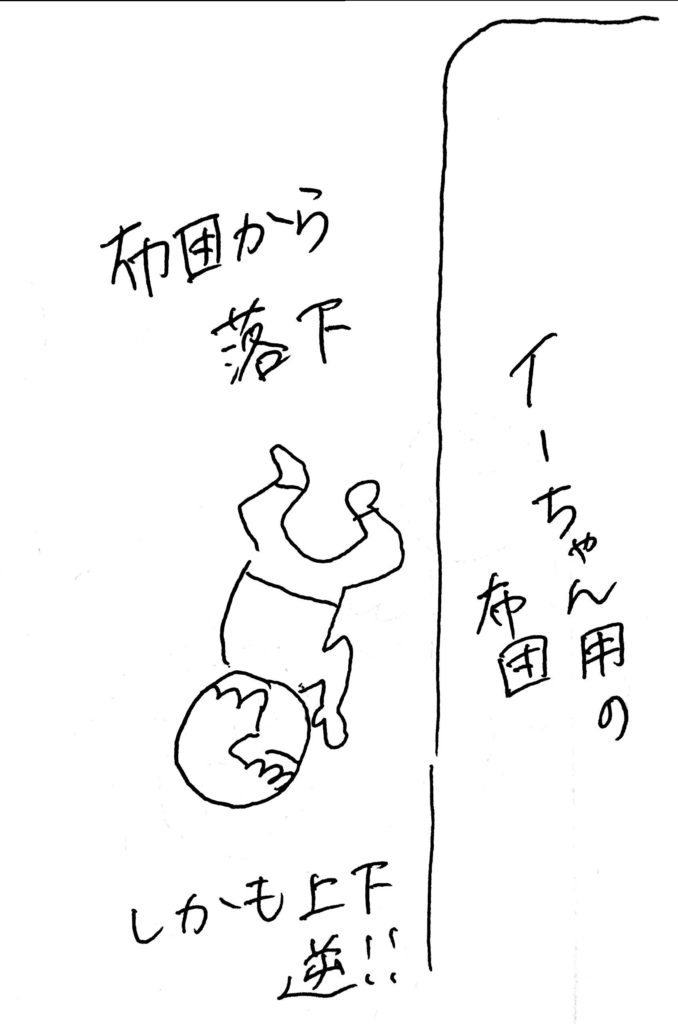 布団から
落下
イーちゃん用の
布団
しかも上下
逆!!